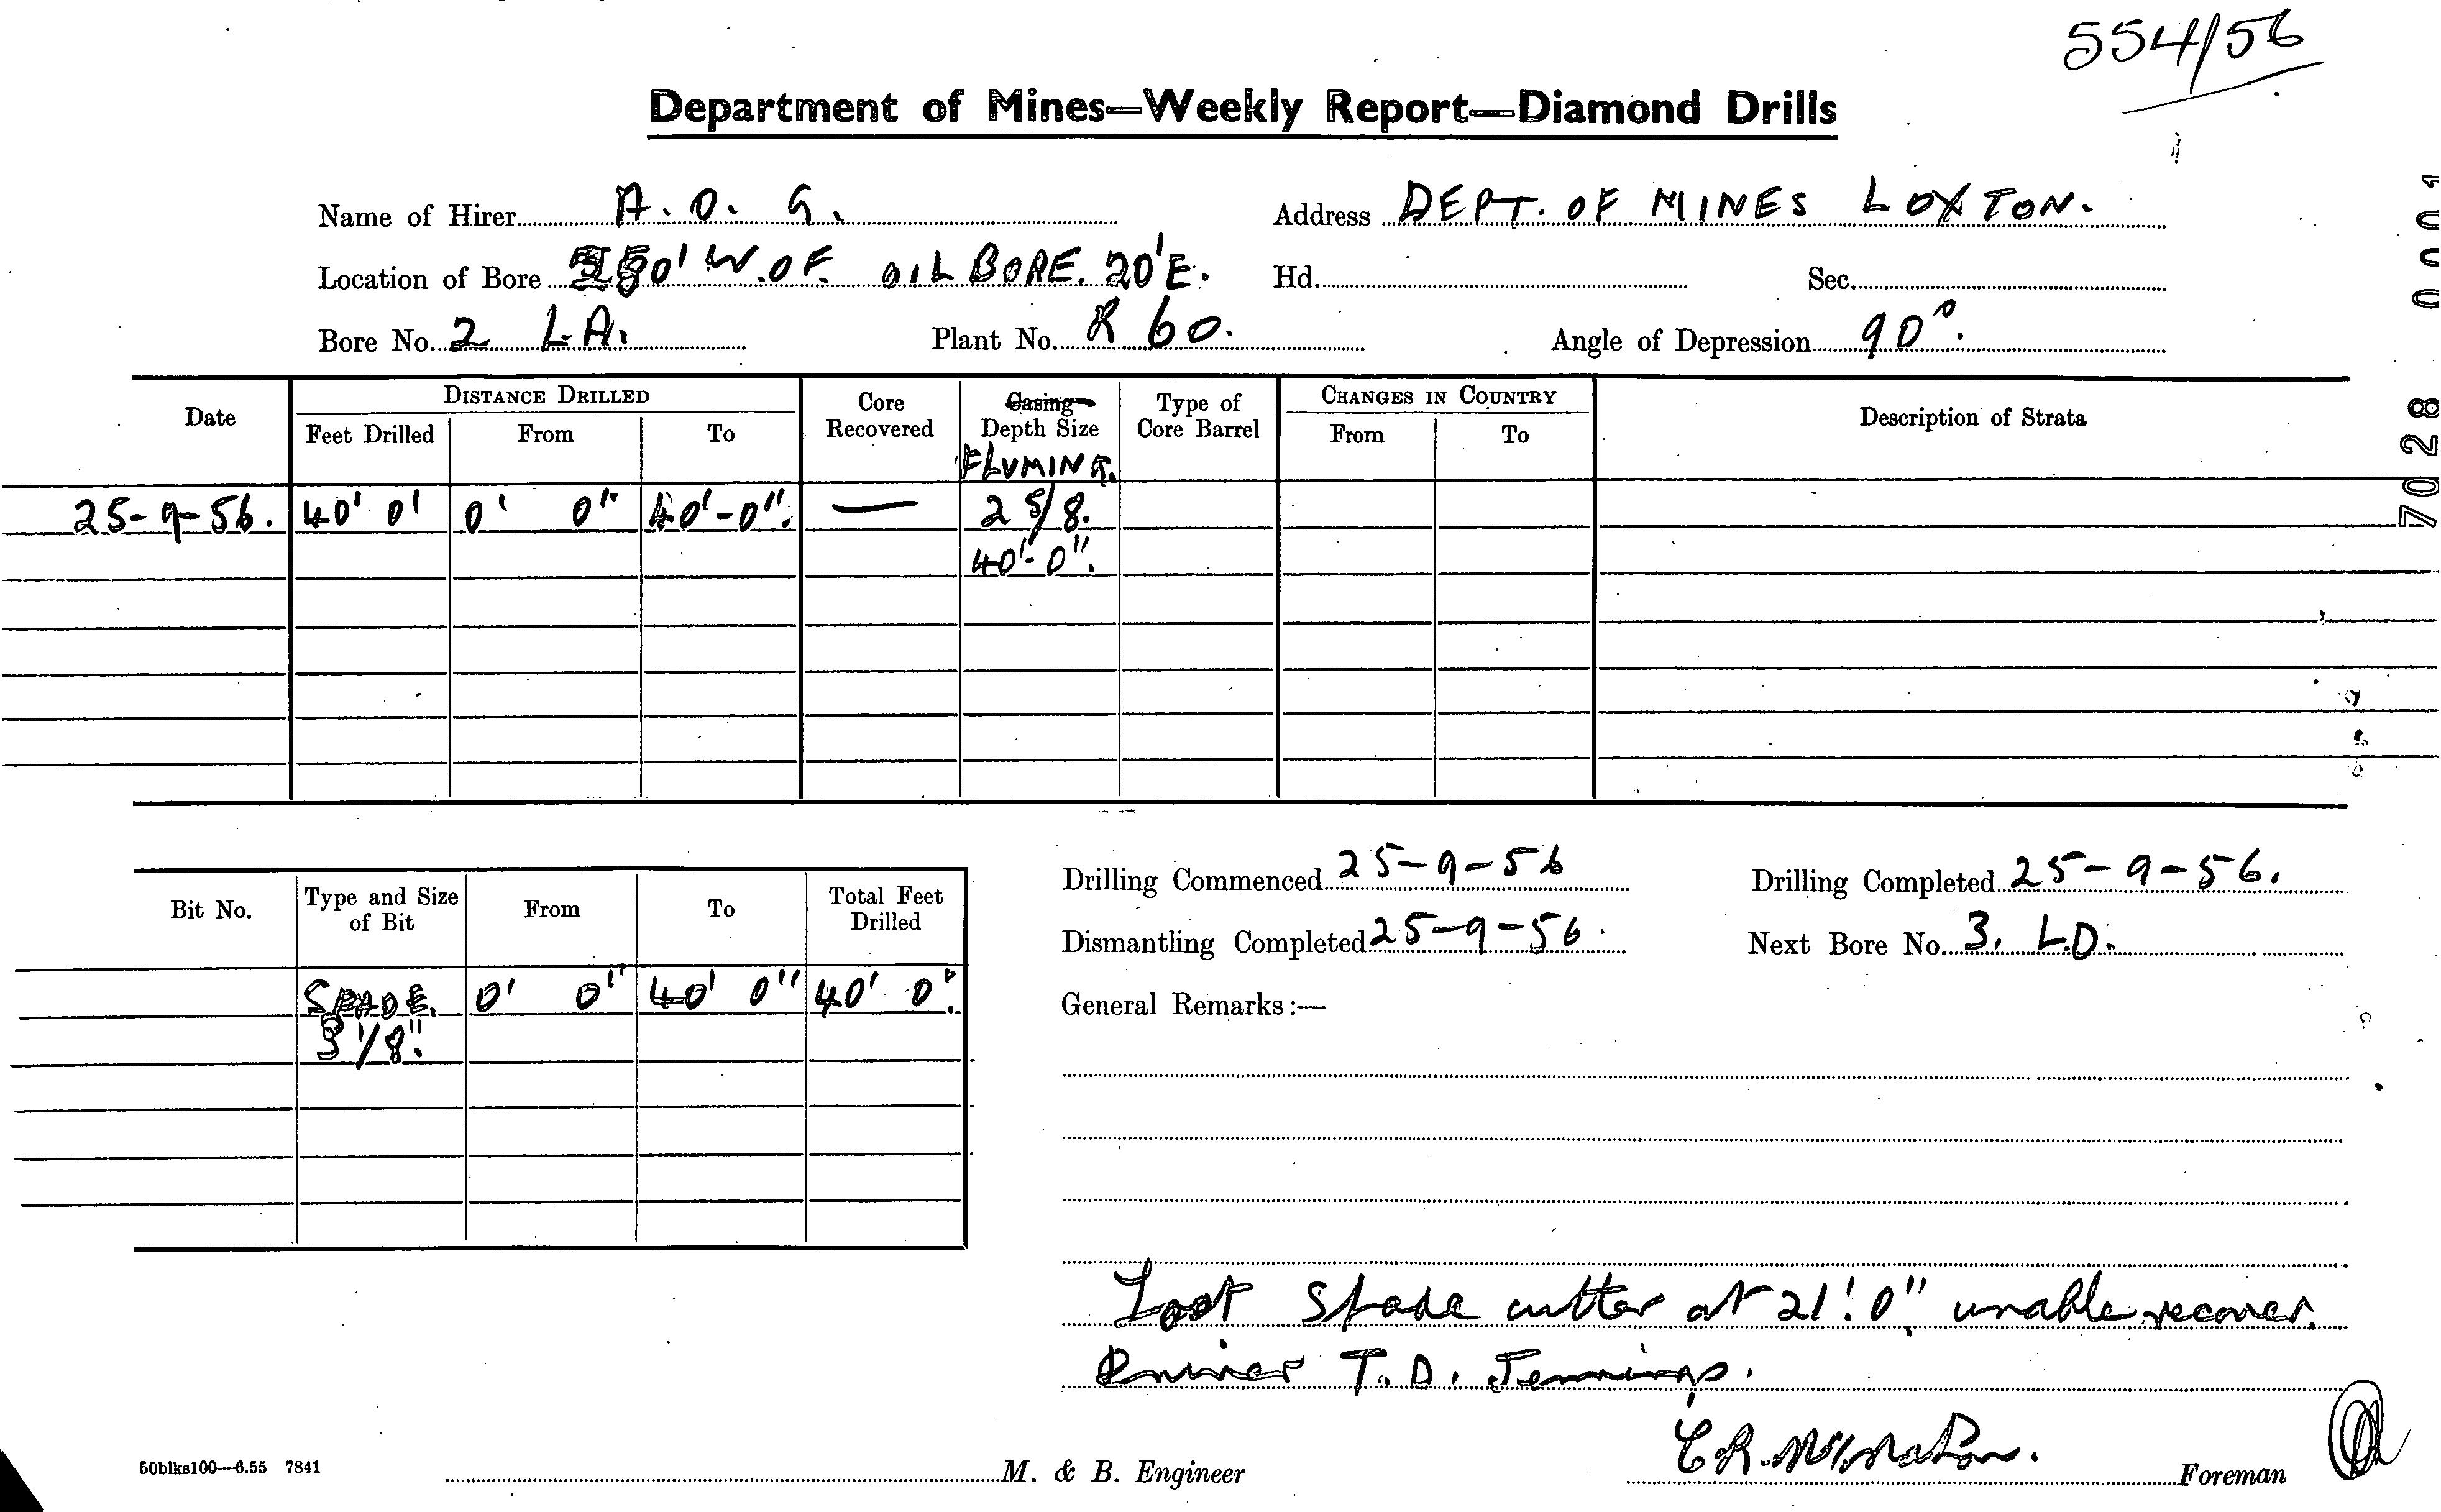 554/56
Department of Mines—Weekly Report—Diamond Drills
Name of Hirer A. O. G. Address DEPT. OF MINES LOXTON.
Location of Bore W. OF OIL BORE. 20'E. Hd. Sec.
Bore No. 2 L.A. Plant No. R 60. Angle of Depression 90°.
Date DISTANCE DRILLED Core Recovered Casing Depth Size Type of Core Barrel CHANGES IN COUNTRY Description of Strata
Feet Drilled From To From To
FLUMING.
25-9-56. 40' 0' 0' 0" 40'-0". — 2 5/8.
40'-0".
7028 0001
Drilling Commenced 25-9-56 Drilling Completed 25-9-56.
Bit No. Type and Size of Bit From To Total Feet Drilled
Dismantling Completed 25-9-56. Next Bore No. 3. L.D.
SPADE. 0' 0" 40' 0" 40' 0".
3 1/8".
General Remarks:—
Lost spade cutter at 21'.0" unable recover.
T.D. Jennings.
50blks100—6.55 7841 M. & B. Engineer Foreman